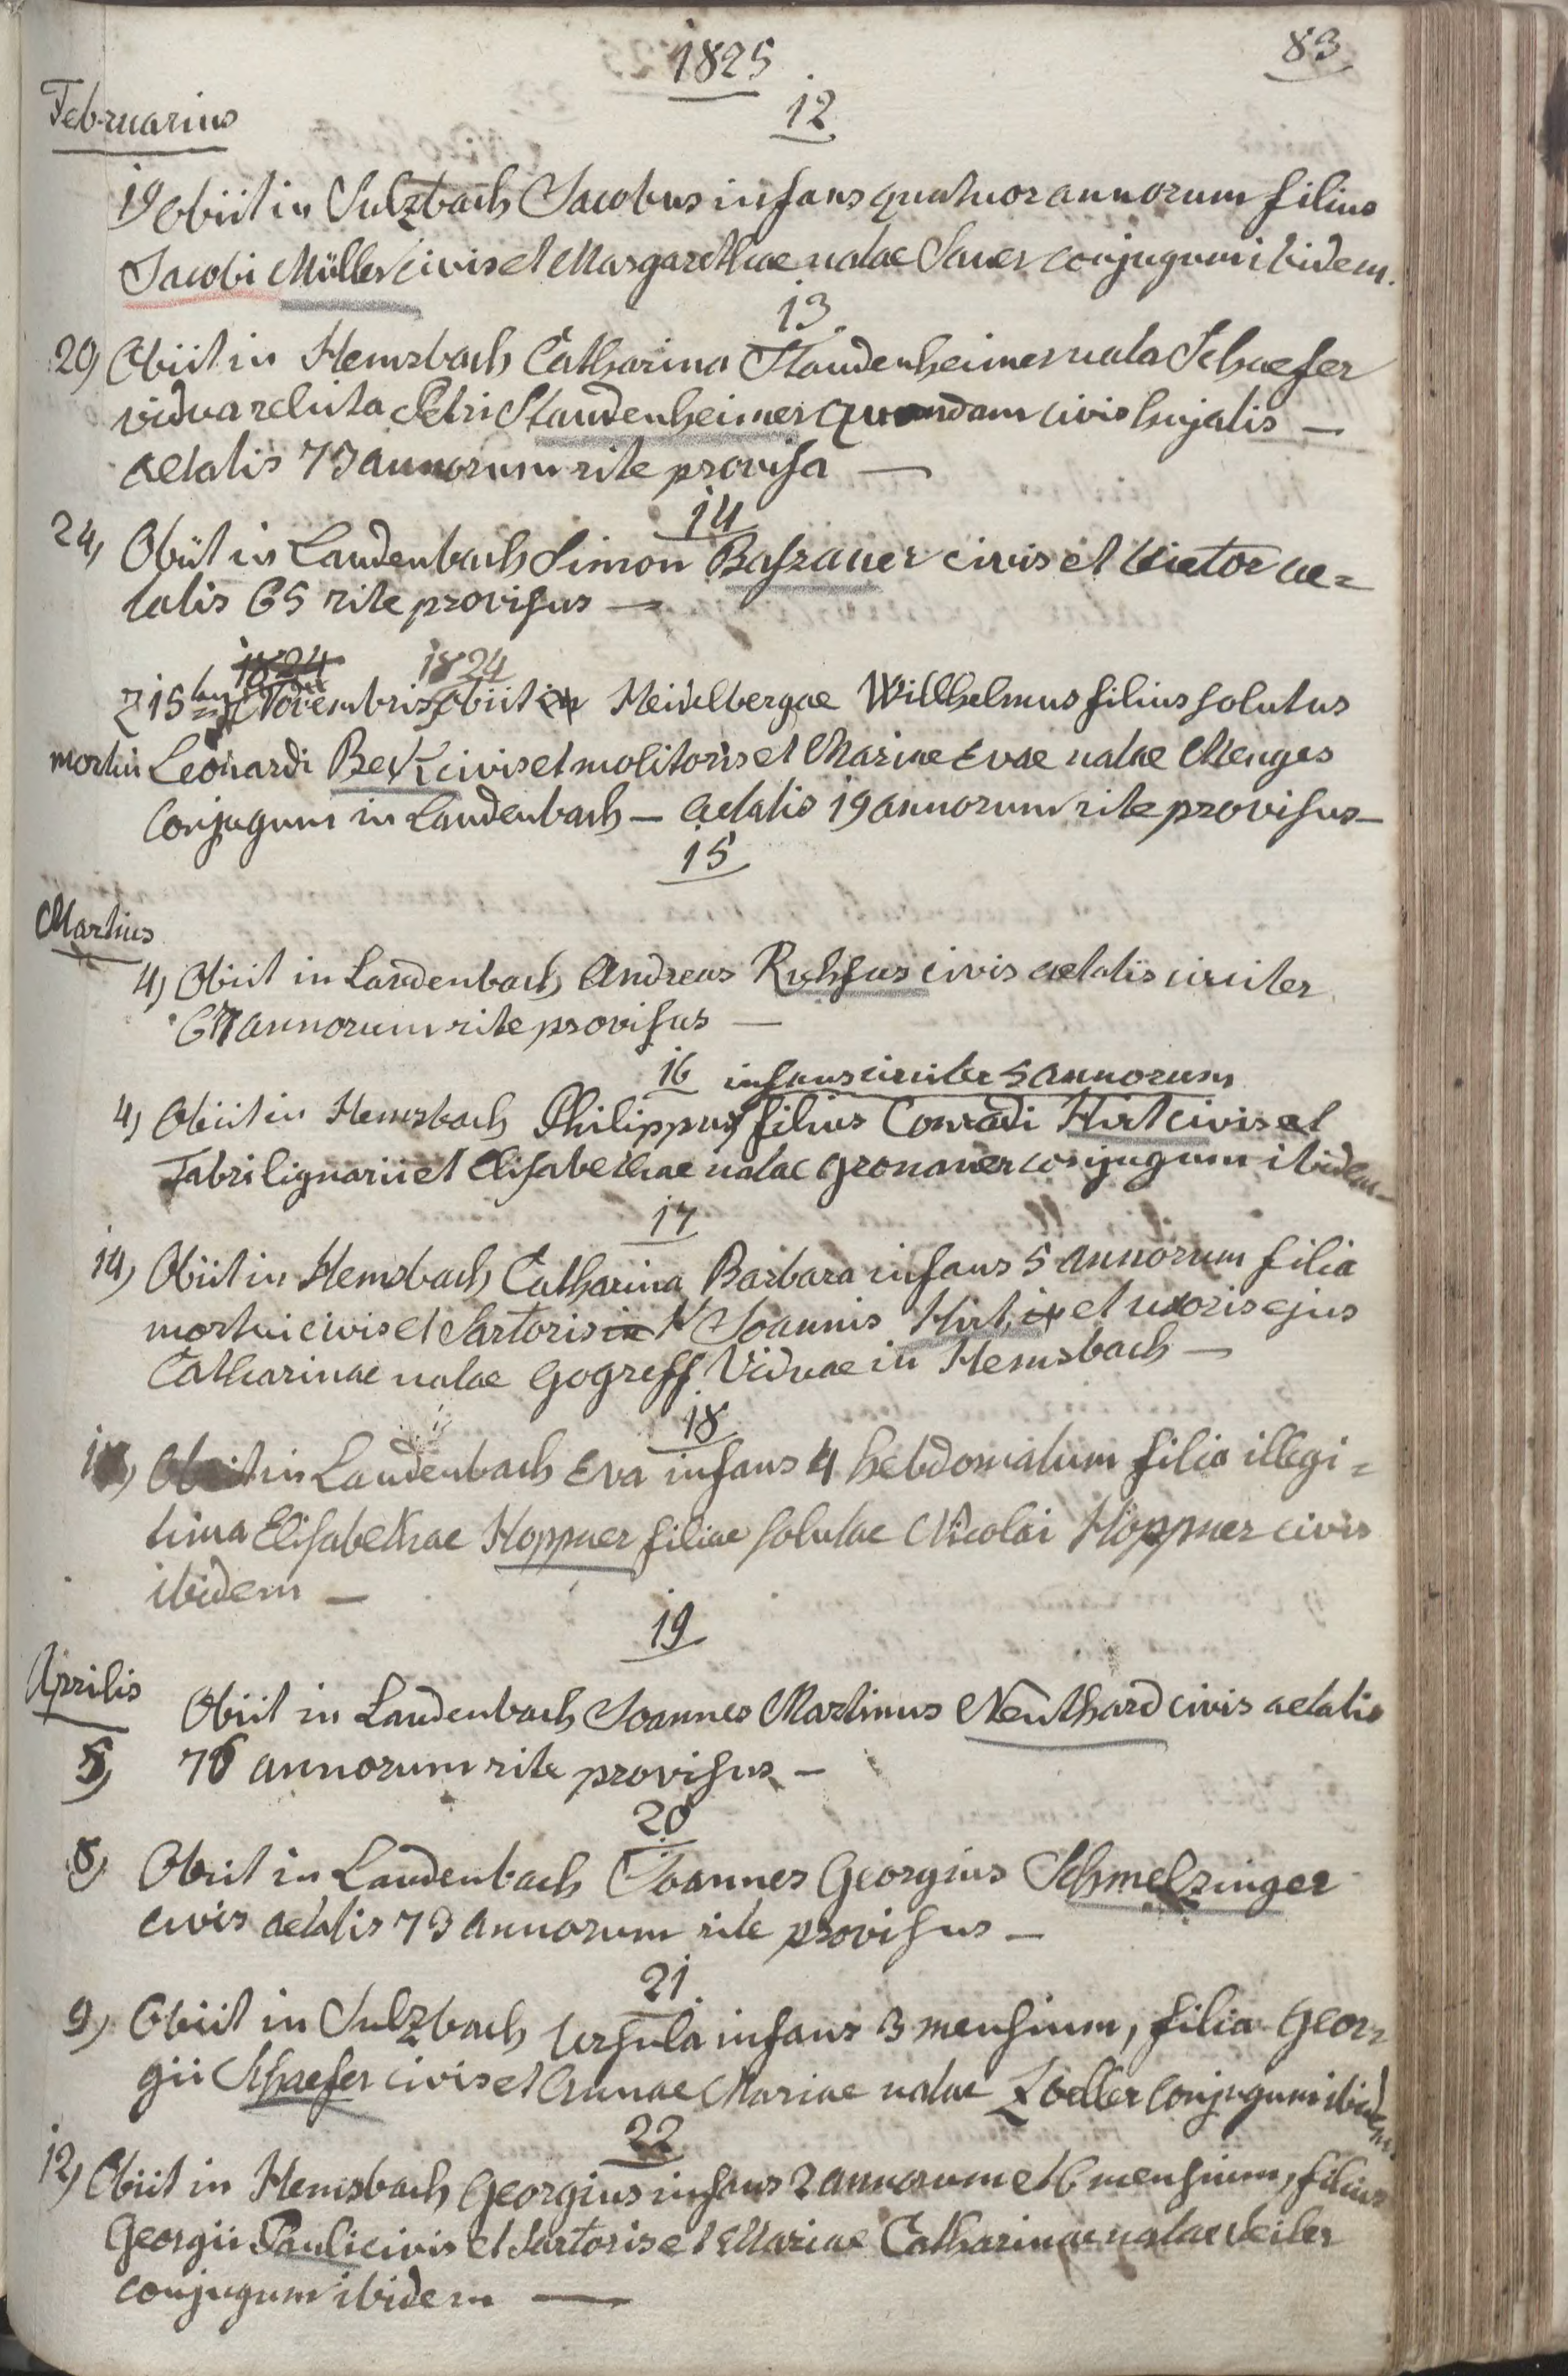 1825
83
Februarius
12
19 Obiit in Sulzbach Jacobus infans quatuor annorum filius
Jacobi Müller civis et Margarethae natae Sauer conjugum ibidem.
13.
20) Obiit in Hemsbach Catharina Staudenheimer nata Schaefer
vidua relicta Petri Staudenheimer quondam civis hujatis —
aetatis 73 annorum rite provisa —
14
24, Obiit in Laudenbach Simon civis et vietor ae=
tatis 65 rite provisus —
1824 1824
15 Novembris obiit in Heidelbergae Willhelmus filius solutus
mortui Leonardi Beck civis et molitoris et Mariae Evae natae Menges
conjugum in Laudenbach — aetatis 19 annorum rite provisus —
15
Martius
4) Obiit in Laudenbach Andreas civis aetatis circiter
67 annorum rite provisus —
16 infans circiter 5 annorum
4) Obiit in Hemsbach Philippus filius Conradi Hirt civis et
Fabri lignarii et Elisabethae natae Gronauer conjugum ibidem —
17
14) Obiit in Hemsbach Catharina Barbara infans 5 annorum filia
mortui civis et Sartoris in Joannis Hirt et uxoris ejus
Catharinae natae Gogreff Viduae in Hemsbach —
18
Obiit in Laudenbach Eva infans 4 hebdomatum filia illegi=
tima Elisabethae Hoppner filiae solutae Nicolai Höppner civis
ibidem —
19
Aprilis
Obiit in Laudenbach Joannes Martinus Neuthard civis aetatis
5) 76 annorum rite provisus —
20
8) Obiit in Laudenbach Joannes Georgius Schmelzinger
civis aetatis 73 annorum rite provisus —
21.
9) Obiit in Sulzbach Ursula infans 3 mensium, filia Geor=
gii Schaefer civis et Annae Mariae natae Zoeller conjugum ibidem.
22
12) Obiit in Hemsbach Georgius infans 2 annorum et 6 mensium, filius
Georgii Pauli civis et Sartoris et Mariae Catharinae natae
conjugum ibidem —